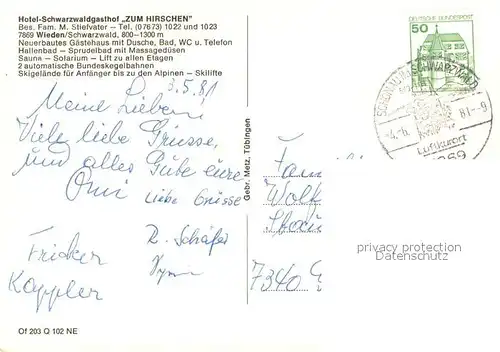 Hotel-Schwarzwaldgasthof „ZUM HIRSCHEN"
Bes. Fam. M. Stiefvater – Tel. (07673) 1022 und 1023
7869 Wieden/Schwarzwald, 800–1300 m
Neuerbautes Gästehaus mit Dusche, Bad, WC u. Telefon
Hallenbad – Sprudelbad mit Massagedüsen
Sauna – Solarium – Lift zu allen Etagen
2 automatische Bundeskegelbahnen
Skigelände für Anfänger bis zu den Alpinen – Skilifte
3.5.81
Meine Lieben
Viele liebe Grüsse,
und alles Gute eure
Omi
Liebe Grüsse
R. Schäfer
Fricker
Kappler
Of 203 Q 102 NE
Gebr. Metz, Tübingen
50
DEUTSCHE BUNDESPOST
SCHWARZWALD
81.-9
Luftkurort
Fam
Wolf
7340 G
privacy protection
Datenschutz